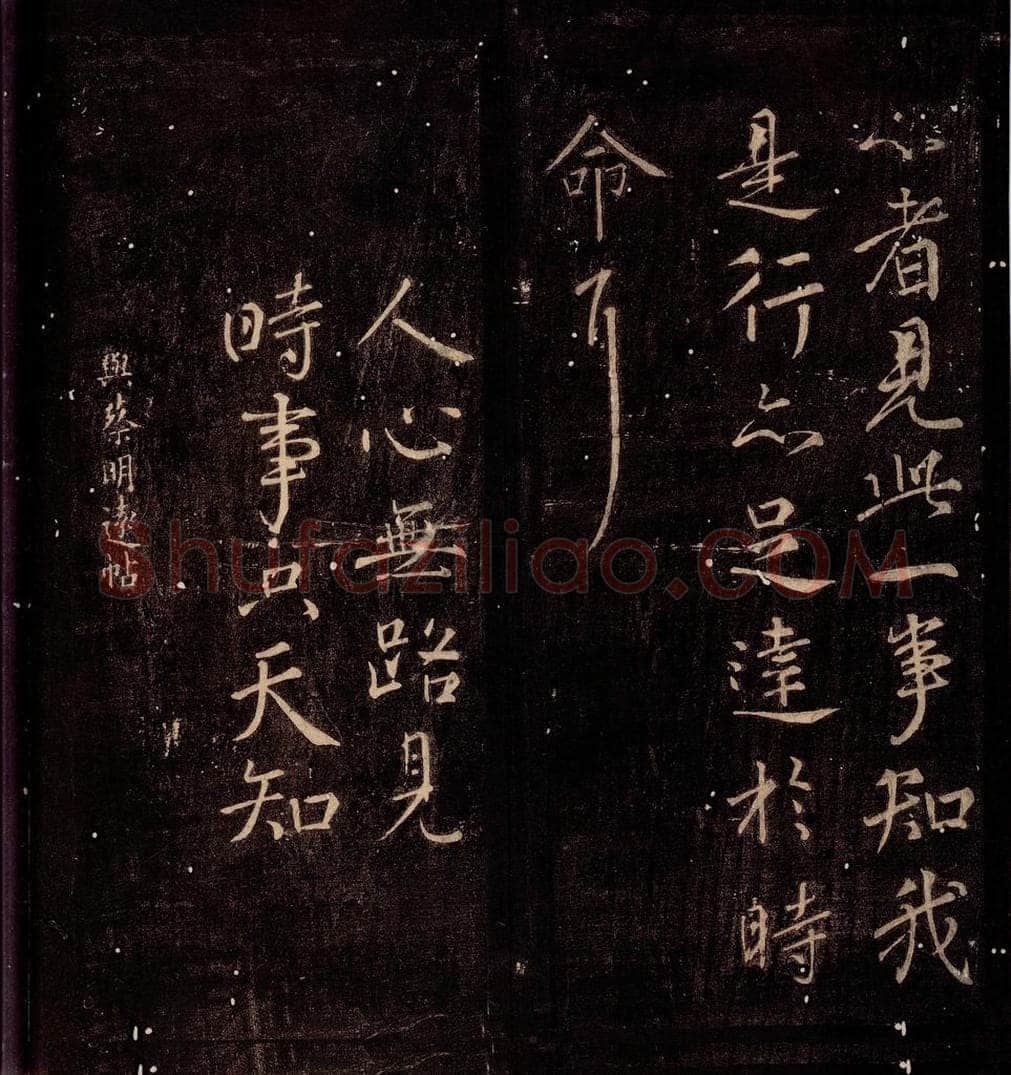 心者見此一事知我
是行亦足達於時
命耳
人心無路見
時事只天知
與蔡明遠帖
Shufaziliao.COM